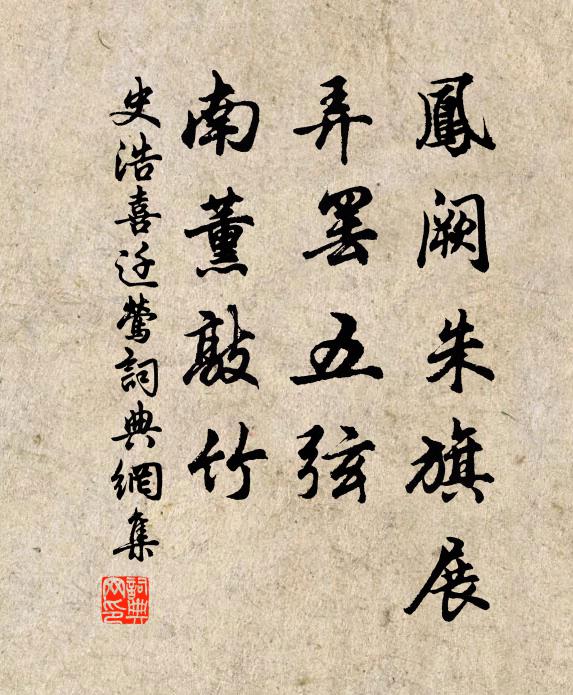 鳳阙朱旗展
弄罢五弦
南薰敲竹
史浩喜迁鶯詞典網集
詞典网印